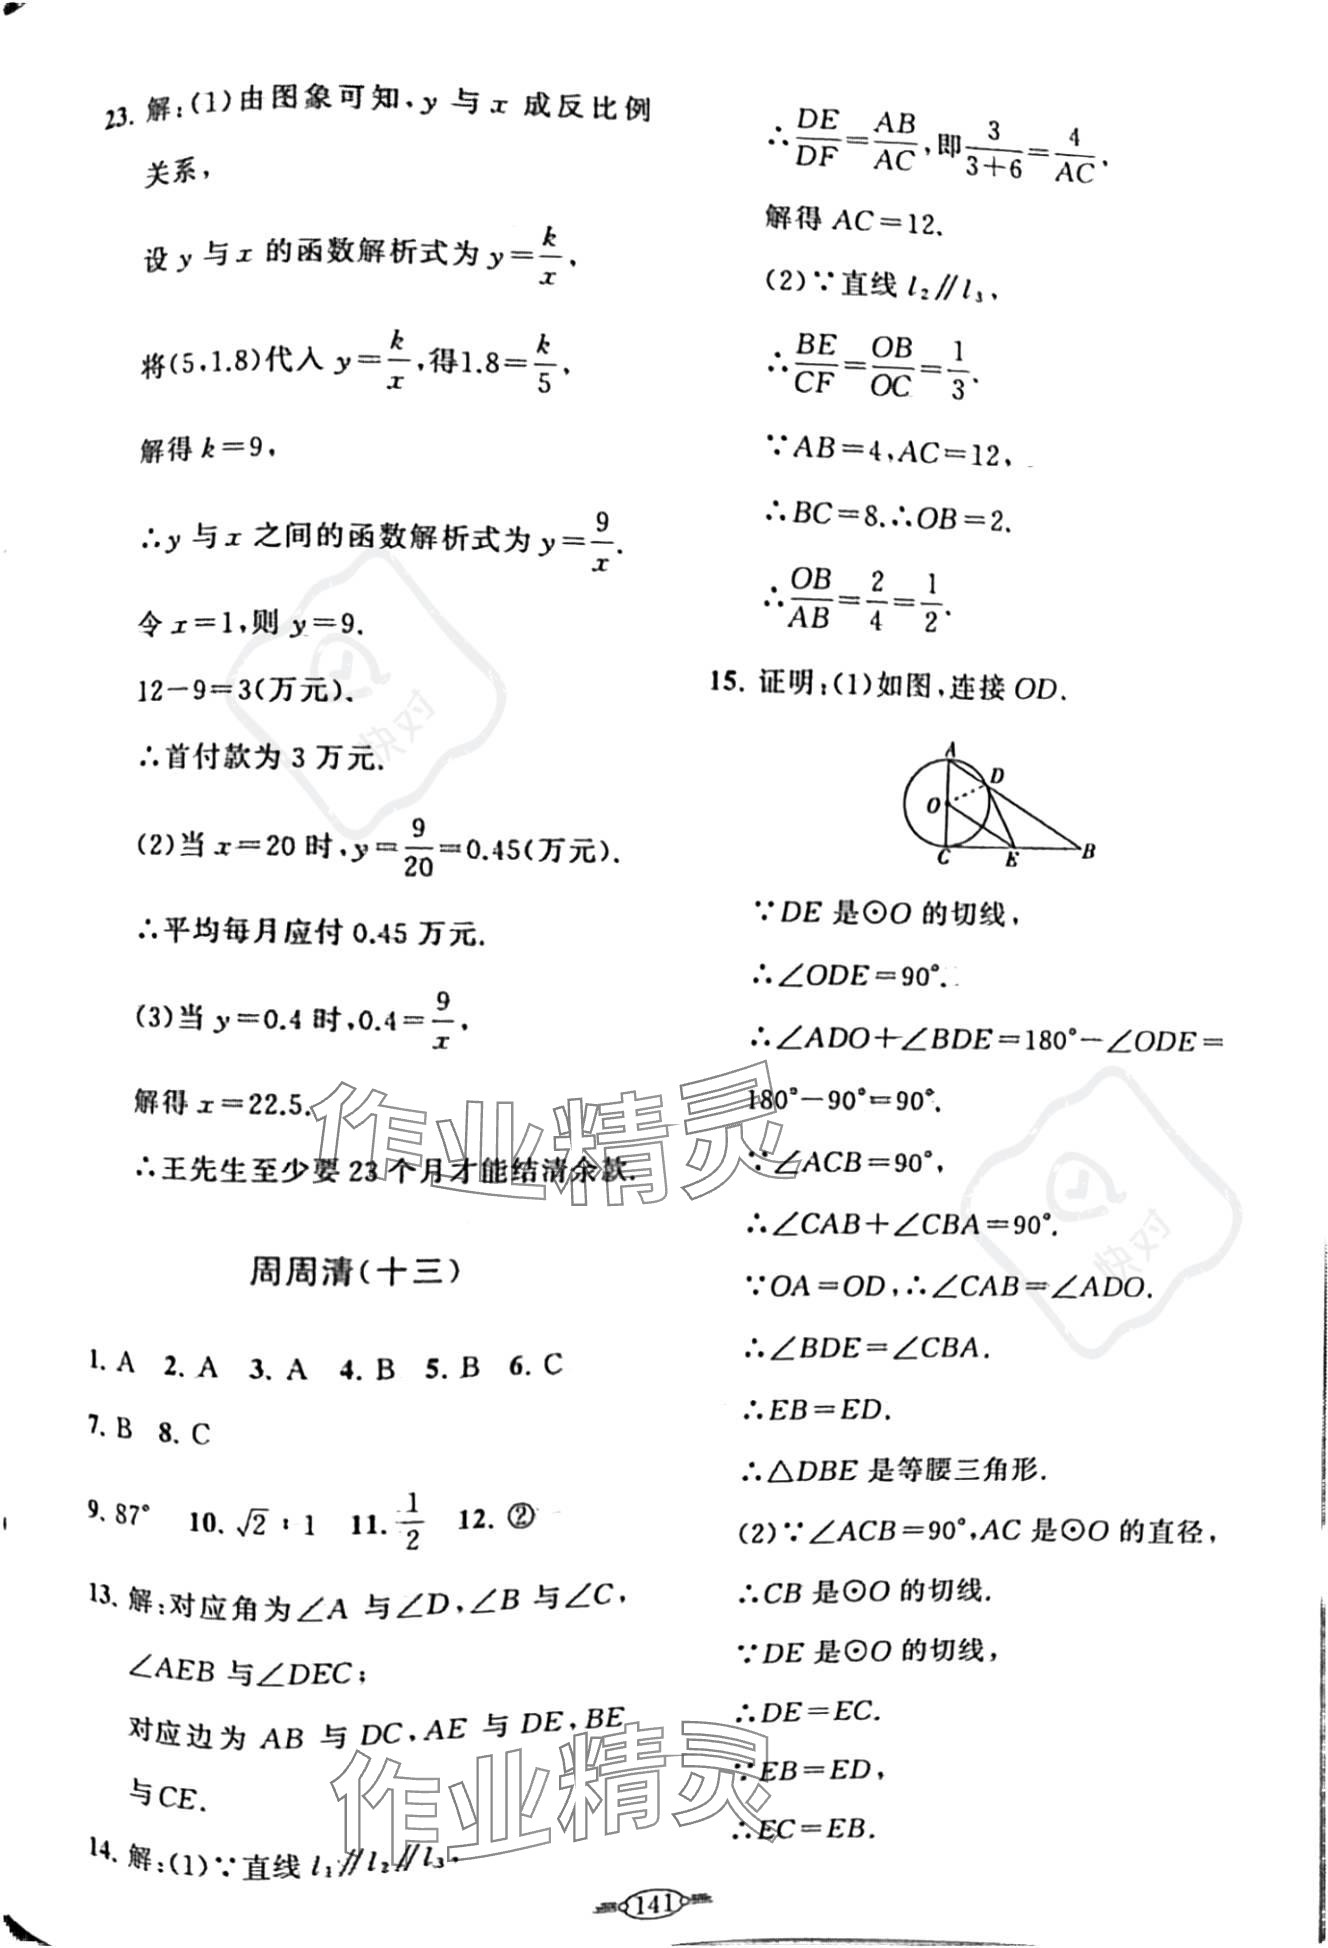 23. 解:(1)由图象可知,y 与 x 成反比例
关系,
设 y 与 x 的函数解析式为 y=k/x,
将(5,1.8)代入 y=k/x,得1.8=k/5,
解得 k=9,
∴y 与 x 之间的函数解析式为 y=9/x.
令 x=1,则 y=9.
12-9=3(万元).
∴首付款为 3 万元.
(2)当 x=20 时,y=9/20=0.45(万元).
∴平均每月应付 0.45 万元.
(3)当 y=0.4 时,0.4=9/x,
解得 x=22.5.
∴王先生至少要 23 个月才能结清余款.
周周清(十三)
1. A 2. A 3. A 4. B 5. B 6. C
7. B 8. C
9. 87° 10. √2∶1 11. 1/2 12. ②
13. 解:对应角为∠A 与∠D,∠B 与∠C,
∠AEB 与∠DEC;
对应边为 AB 与 DC,AE 与 DE,BE
与CE.
14. 解:(1)∵直线 l₁∥l₂∥l₃,
∴DE/DF=AB/AC,即3/(3+6)=4/AC,
解得 AC=12.
(2)∵直线 l₂∥l₃,
∴BE/CF=OB/OC=1/3.
∵AB=4,AC=12,
∴BC=8.∴OB=2.
∴OB/AB=2/4=1/2.
15. 证明:(1)如图,连接 OD.
A
D
O
C E B
∵DE 是⊙O 的切线,
∴∠ODE=90°.
∴∠ADO+∠BDE=180°-∠ODE=
180°-90°=90°.
∵∠ACB=90°,
∴∠CAB+∠CBA=90°.
∵OA=OD,∴∠CAB=∠ADO.
∴∠BDE=∠CBA.
∴EB=ED.
∴△DBE 是等腰三角形.
(2)∵∠ACB=90°,AC 是⊙O 的直径,
∴CB 是⊙O 的切线.
∵DE 是⊙O 的切线,
∴DE=EC.
∵EB=ED,
∴EC=EB.
141
快对
快对
作业精灵
作业精灵